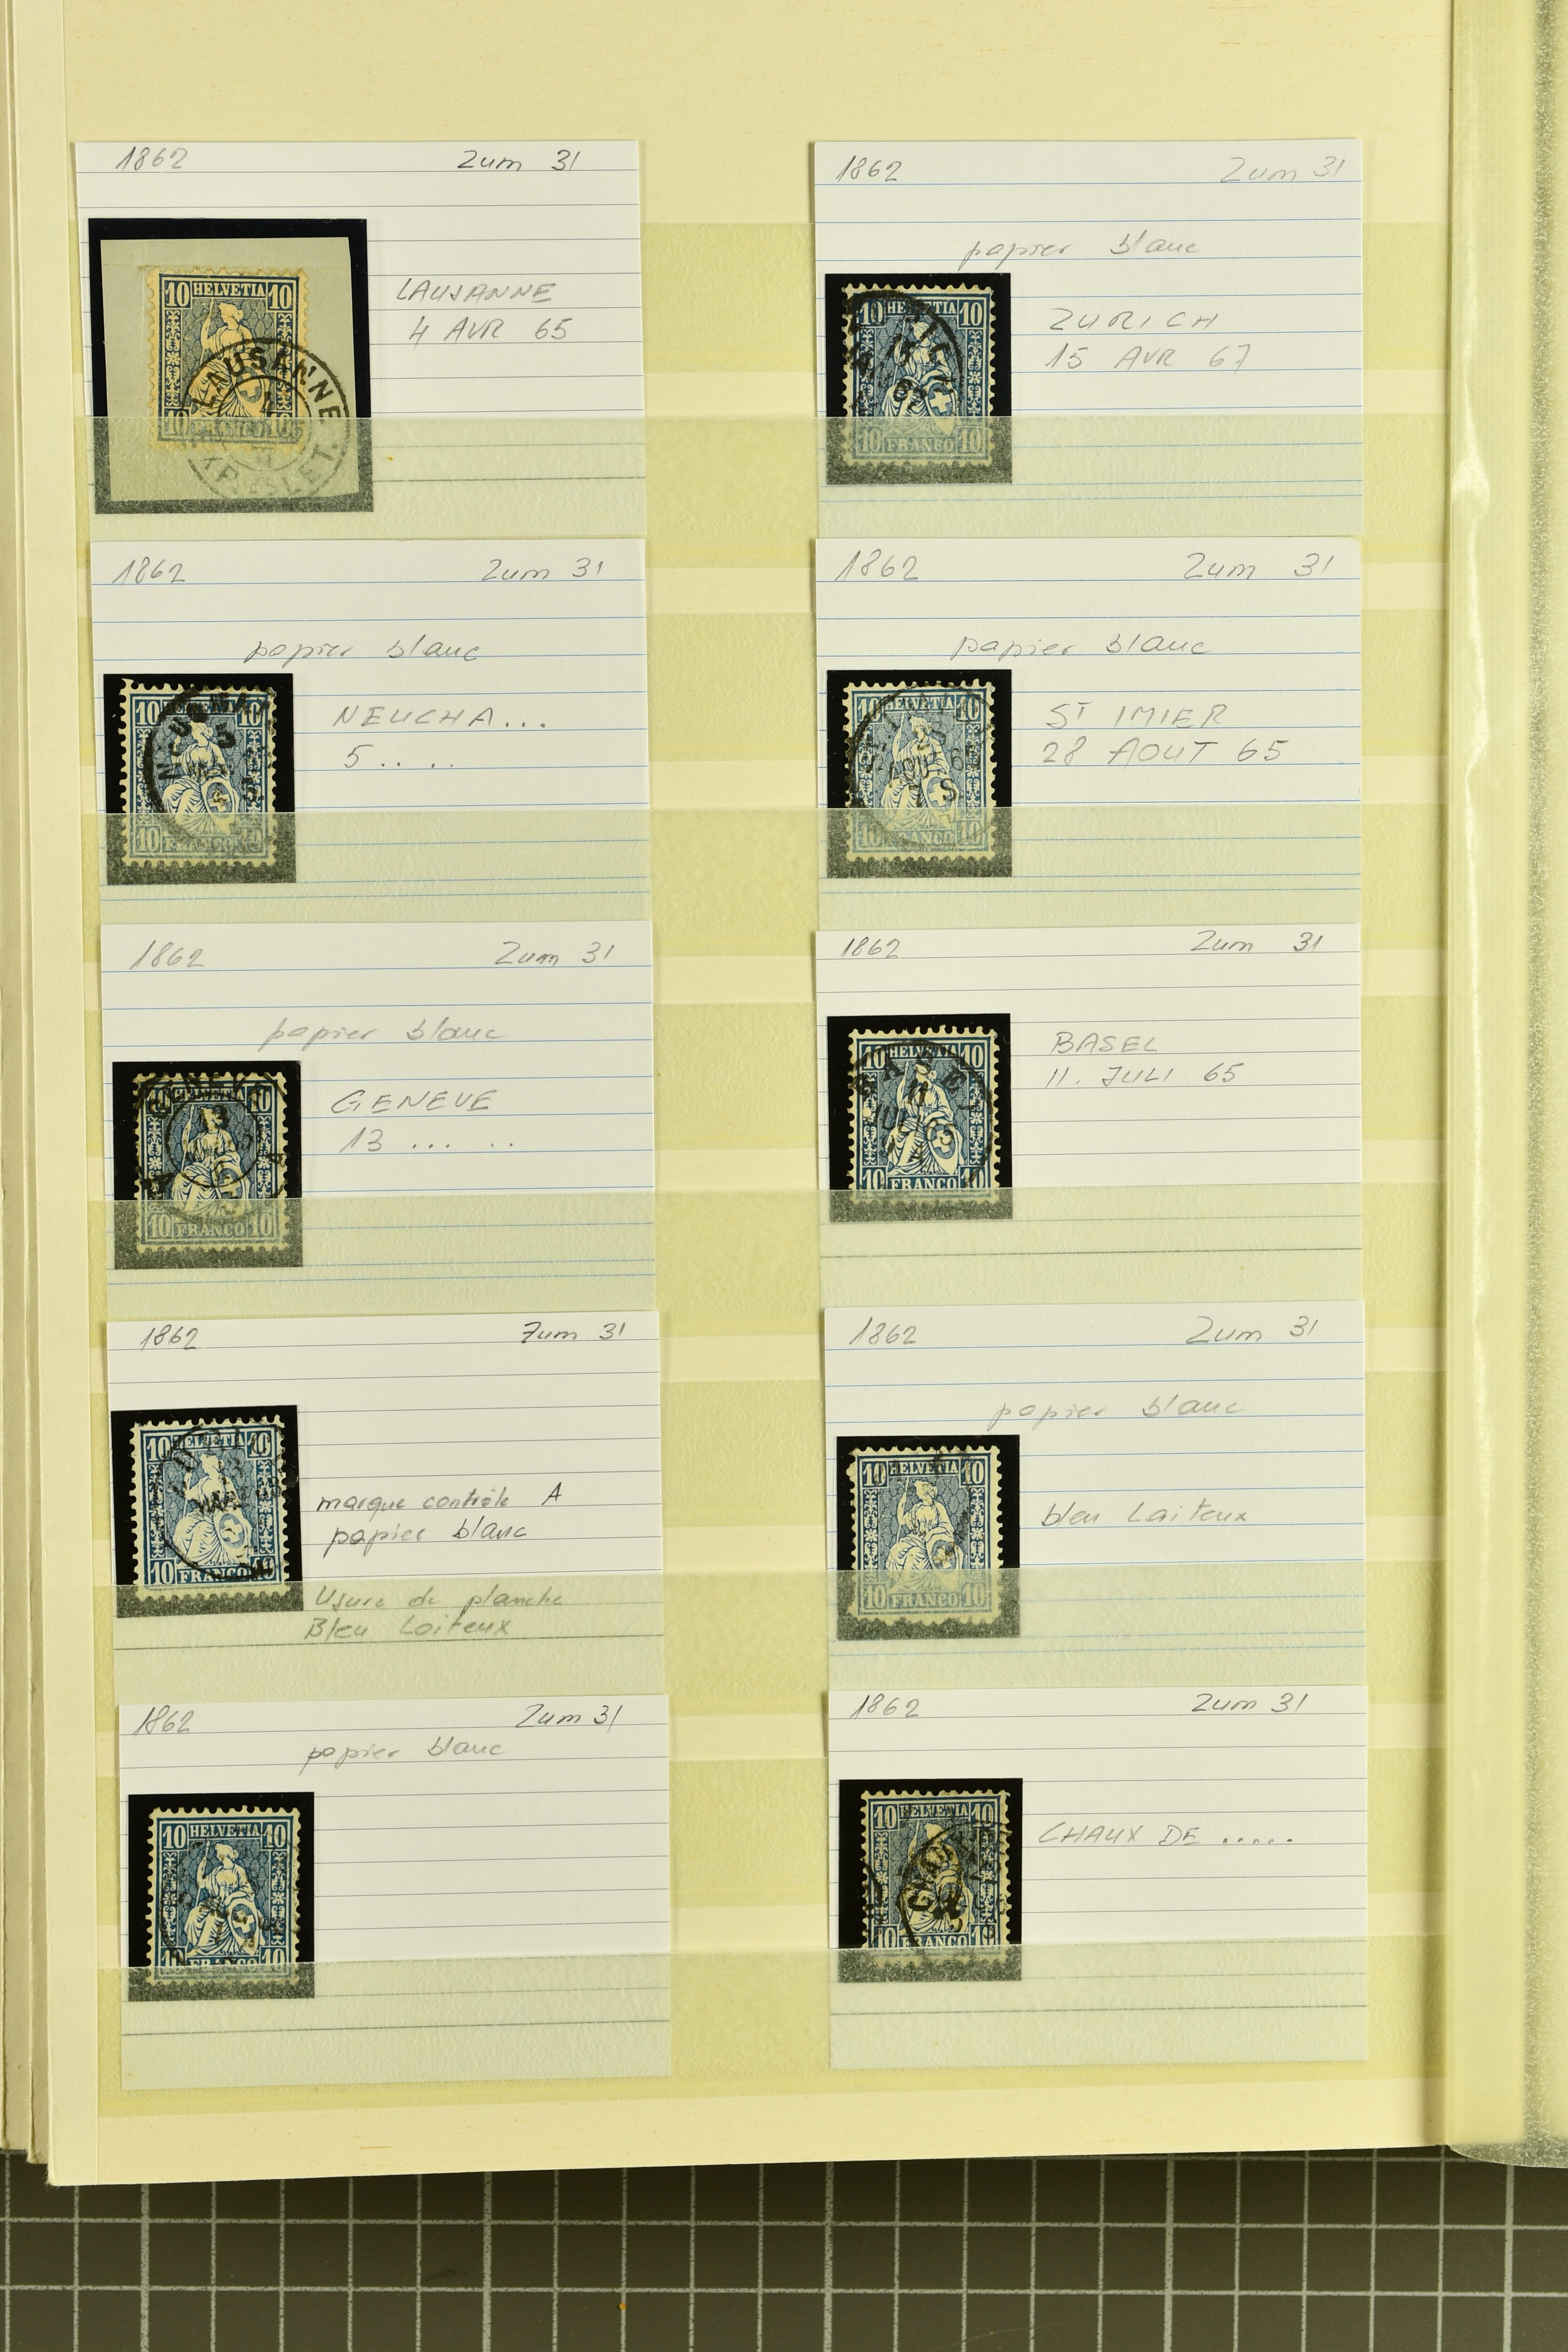 1862 Zum 31
10 HELVETIA 10
LAUSANNE
4 AVR 65
LAUSANNE
10 FRANCO 10
1862 Zum 31
papier blanc
10 HELVETIA 10
ZURICH
15 AVR 67
10 FRANCO 10
1862 Zum 31
papier blanc
10 HELVETIA 10
NEUCHA...
5.. ..
10 FRANCO 10
1862 Zum 31
papier blanc
10 HELVETIA 10
ST IMIER
28 AOUT 65
10 FRANCO 10
1862 Zum 31
papier blanc
10 HELVETIA 10
GENEVE
13 ... ..
10 FRANCO 10
1862 Zum 31
10 HELVETIA 10
BASEL
11. JULI 65
10 FRANCO 10
1862 Zum 31
10 HELVETIA 10
marque contrôle A
papier blanc
10 FRANCO 10
Usure de planche
Bleu Laiteux
1862 Zum 31
papier blanc
10 HELVETIA 10
bleu Laiteux
10 FRANCO 10
1862 Zum 31
papier blanc
10 HELVETIA 10
10 FRANCO 10
1862 Zum 31
10 HELVETIA 10
CHAUX DE .....
10 FRANCO 10